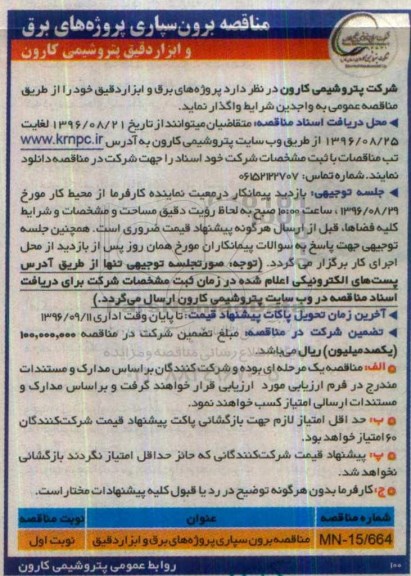 مناقصه برون‌سپاری پروژه‌های برق
و ابزار دقیق پتروشیمی کارون
شرکت پتروشیمی کارون در نظر دارد پروژه‌های برق و ابزار دقیق خود را از طریق
مناقصه عمومی به واجدین شرایط واگذار نماید.
محل دریافت اسناد مناقصه: متقاضیان میتوانند از تاریخ ۱۳۹۶/۰۸/۲۱ لغایت
۱۳۹۶/۰۸/۲۵ از طریق وب سایت پتروشیمی کارون به آدرس www.krnpc.ir
تب مناقصات با ثبت مشخصات شرکت خود اسناد را جهت شرکت در مناقصه دانلود
نمایند. شماره تماس: ۰۶۱۵۲۱۲۲۷۰۷
جلسه توجیهی: بازدید پیمانکار در معیت نماینده کارفرما از محیط کار مورخ
۱۳۹۶/۰۸/۲۹، ساعت ۱۰:۰۰ صبح به لحاظ رؤیت دقیق مساحت و مشخصات و شرایط
کلیه فضاها، قبل از ارسال هرگونه پیشنهاد قیمت ضروری است. همچنین جلسه
توجیهی جهت پاسخ به سوالات پیمانکاران مورخ همان روز پس از بازدید از محل
اجرای کار برگزار می گردد. (توجه: صورتجلسه توجیهی تنها از طریق آدرس
پست‌های الکترونیکی اعلام شده در زمان ثبت مشخصات شرکت برای دریافت
اسناد مناقصه در وب سایت پتروشیمی کارون ارسال می‌گردد.)
آخرین زمان تحویل پاکات پیشنهاد قیمت: تا پایان وقت اداری ۱۳۹۶/۰۹/۱۱
تضمین شرکت در مناقصه: مبلغ تضمین شرکت در مناقصه ۱۰۰,۰۰۰,۰۰۰
(یکصد میلیون) ریال می‌باشد.
الف: مناقصه یک مرحله ای بوده و شرکت کنندگان بر اساس مدارک و مستندات
مندرج در فرم ارزیابی مورد ارزیابی قرار خواهند گرفت و بر اساس مدارک و
مستندات ارسالی امتیاز کسب خواهند نمود.
ب: حد اقل امتیاز لازم جهت بازگشائی پاکت پیشنهاد قیمت شرکت‌کنندگان
۶۰ امتیاز خواهد بود.
پ: پیشنهاد قیمت شرکت‌کنندگانی که حائز حداقل امتیاز نگردند بازگشائی
نخواهد شد.
ج: کارفرما بدون هرگونه توضیح در رد یا قبول کلیه پیشنهادات مختار است.
شماره مناقصه عنوان نوبت مناقصه
MN-15/664 مناقصه برون سپاری پروژه‌های برق و ابزار دقیق نوبت اول
۱۰۰ روابط عمومی پتروشیمی کارون